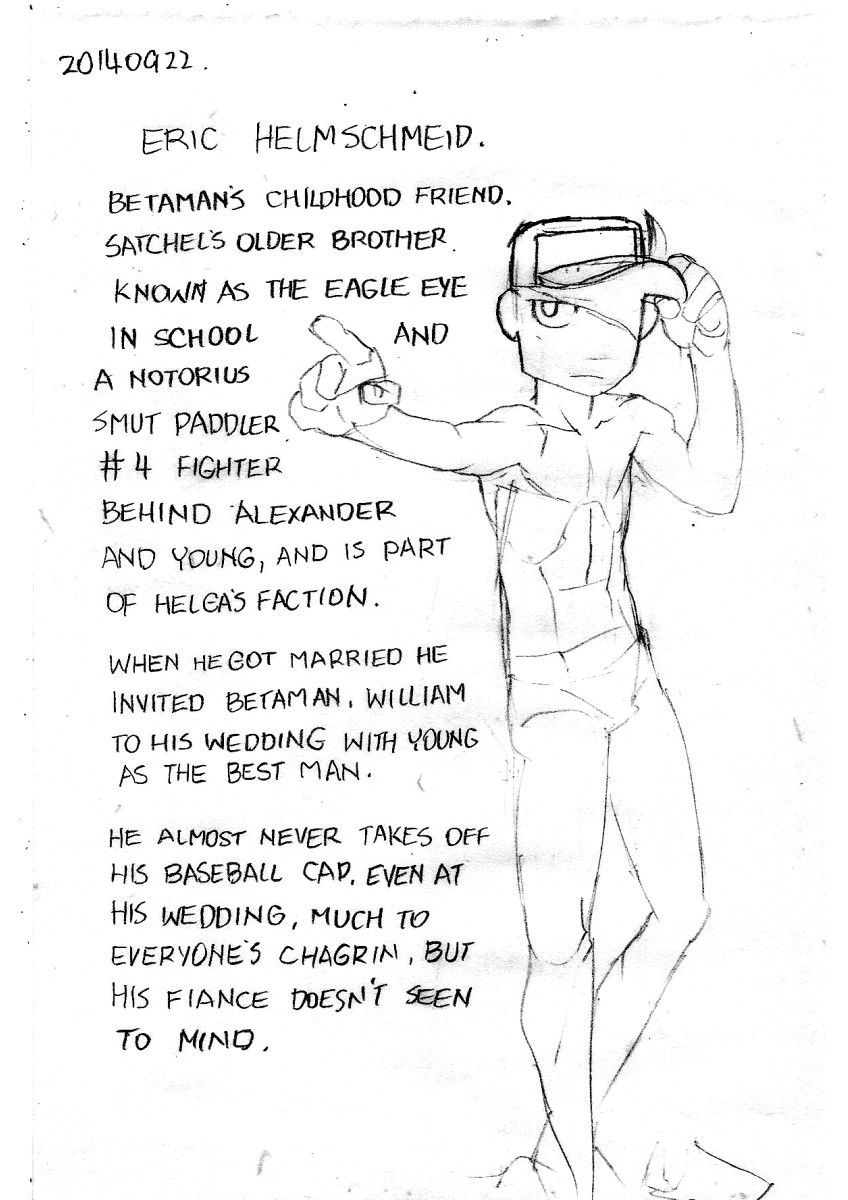 20140922.
ERIC HELMSCHMEID.
BETAMAN'S CHILDHOOD FRIEND.
SATCHEL'S OLDER BROTHER.
KNOWN AS THE EAGLE EYE
IN SCHOOL AND
A NOTORIUS
SMUT PADDLER
#4 FIGHTER
BEHIND ALEXANDER
AND YOUNG, AND IS PART
OF HELGA'S FACTION.
WHEN HE GOT MARRIED HE
INVITED BETAMAN, WILLIAM
TO HIS WEDDING WITH YOUNG
AS THE BEST MAN.
HE ALMOST NEVER TAKES OFF
HIS BASEBALL CAP, EVEN AT
HIS WEDDING, MUCH TO
EVERYONE'S CHAGRIN, BUT
HIS FIANCE DOESN'T SEEN
TO MIND.